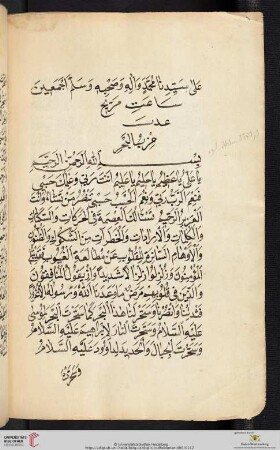 على سيدنا محمد واله وصحبه وسلم اجمعين
ساعت مريخ
عدد
حزب البحر
بسم الله الرحمن الرحيم
يا على يا عظيم يا حليم يا عليم انت ربى وعلمك حسبى
فنعم الرب ربى ونعم الحسب حسبى تنصر من تشاء وانت
العزيز الرحيم نسئلك العصمة فى الحركات والسكنات
والكلمات والارادات والخطرات من الشكوك والظنون
والاوهام الساترة للقلوب عن مطالعة الغيوب فقد ابتلى
المؤمنون وزلزلوا زلزالا شديدا واذ يقول المنافقون
والذين فى قلوبهم مرض ما وعدنا الله ورسوله الا غرورا
فثبتنا وانصرنا وسخر لنا هذا البحر كما سخرت البحر لموسى
عليه السلام وسخرت النار لابراهيم عليه السلام
وسخرت الجبال والحديد لداود عليه السلام
وسخرت
UNIVERSITÄTS-
BIBLIOTHEK
HEIDELBERG
© Universitätsbibliothek Heidelberg